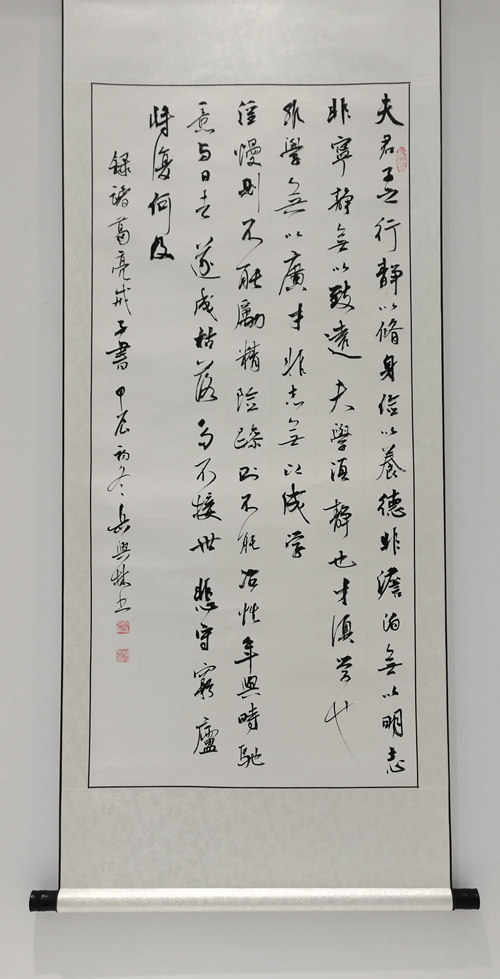 夫君子之行靜以脩身儉以養德非澹泊無以明志
非寧靜無以致遠夫學須靜也才須學也
非學無以廣才非志無以成学
淫慢則不能勵精險躁則不能冶性年與時馳
意与日去遂成枯落多不接世悲守窮廬
将復何及
録諸葛亮戒子書甲辰初冬书